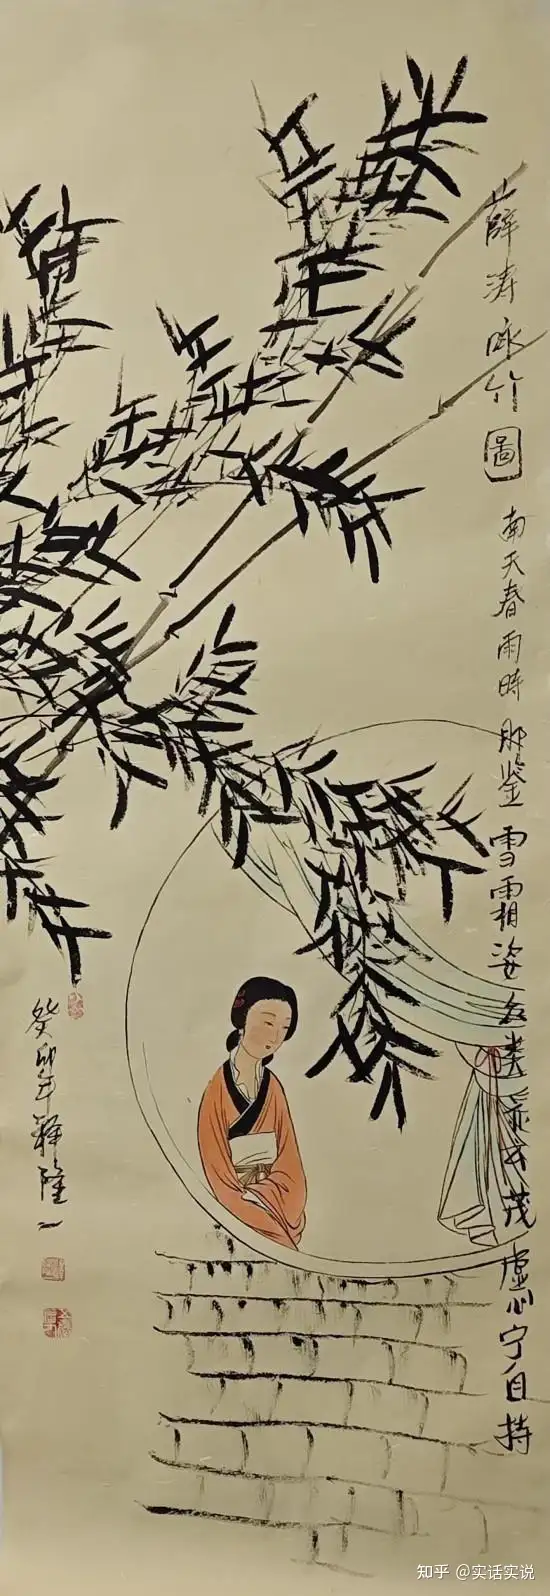 薛涛咏竹圖 南天春雨時那鉴雪霜姿众类亦云茂虚心宁自持
癸卯年释隆一
知乎 @实话实说